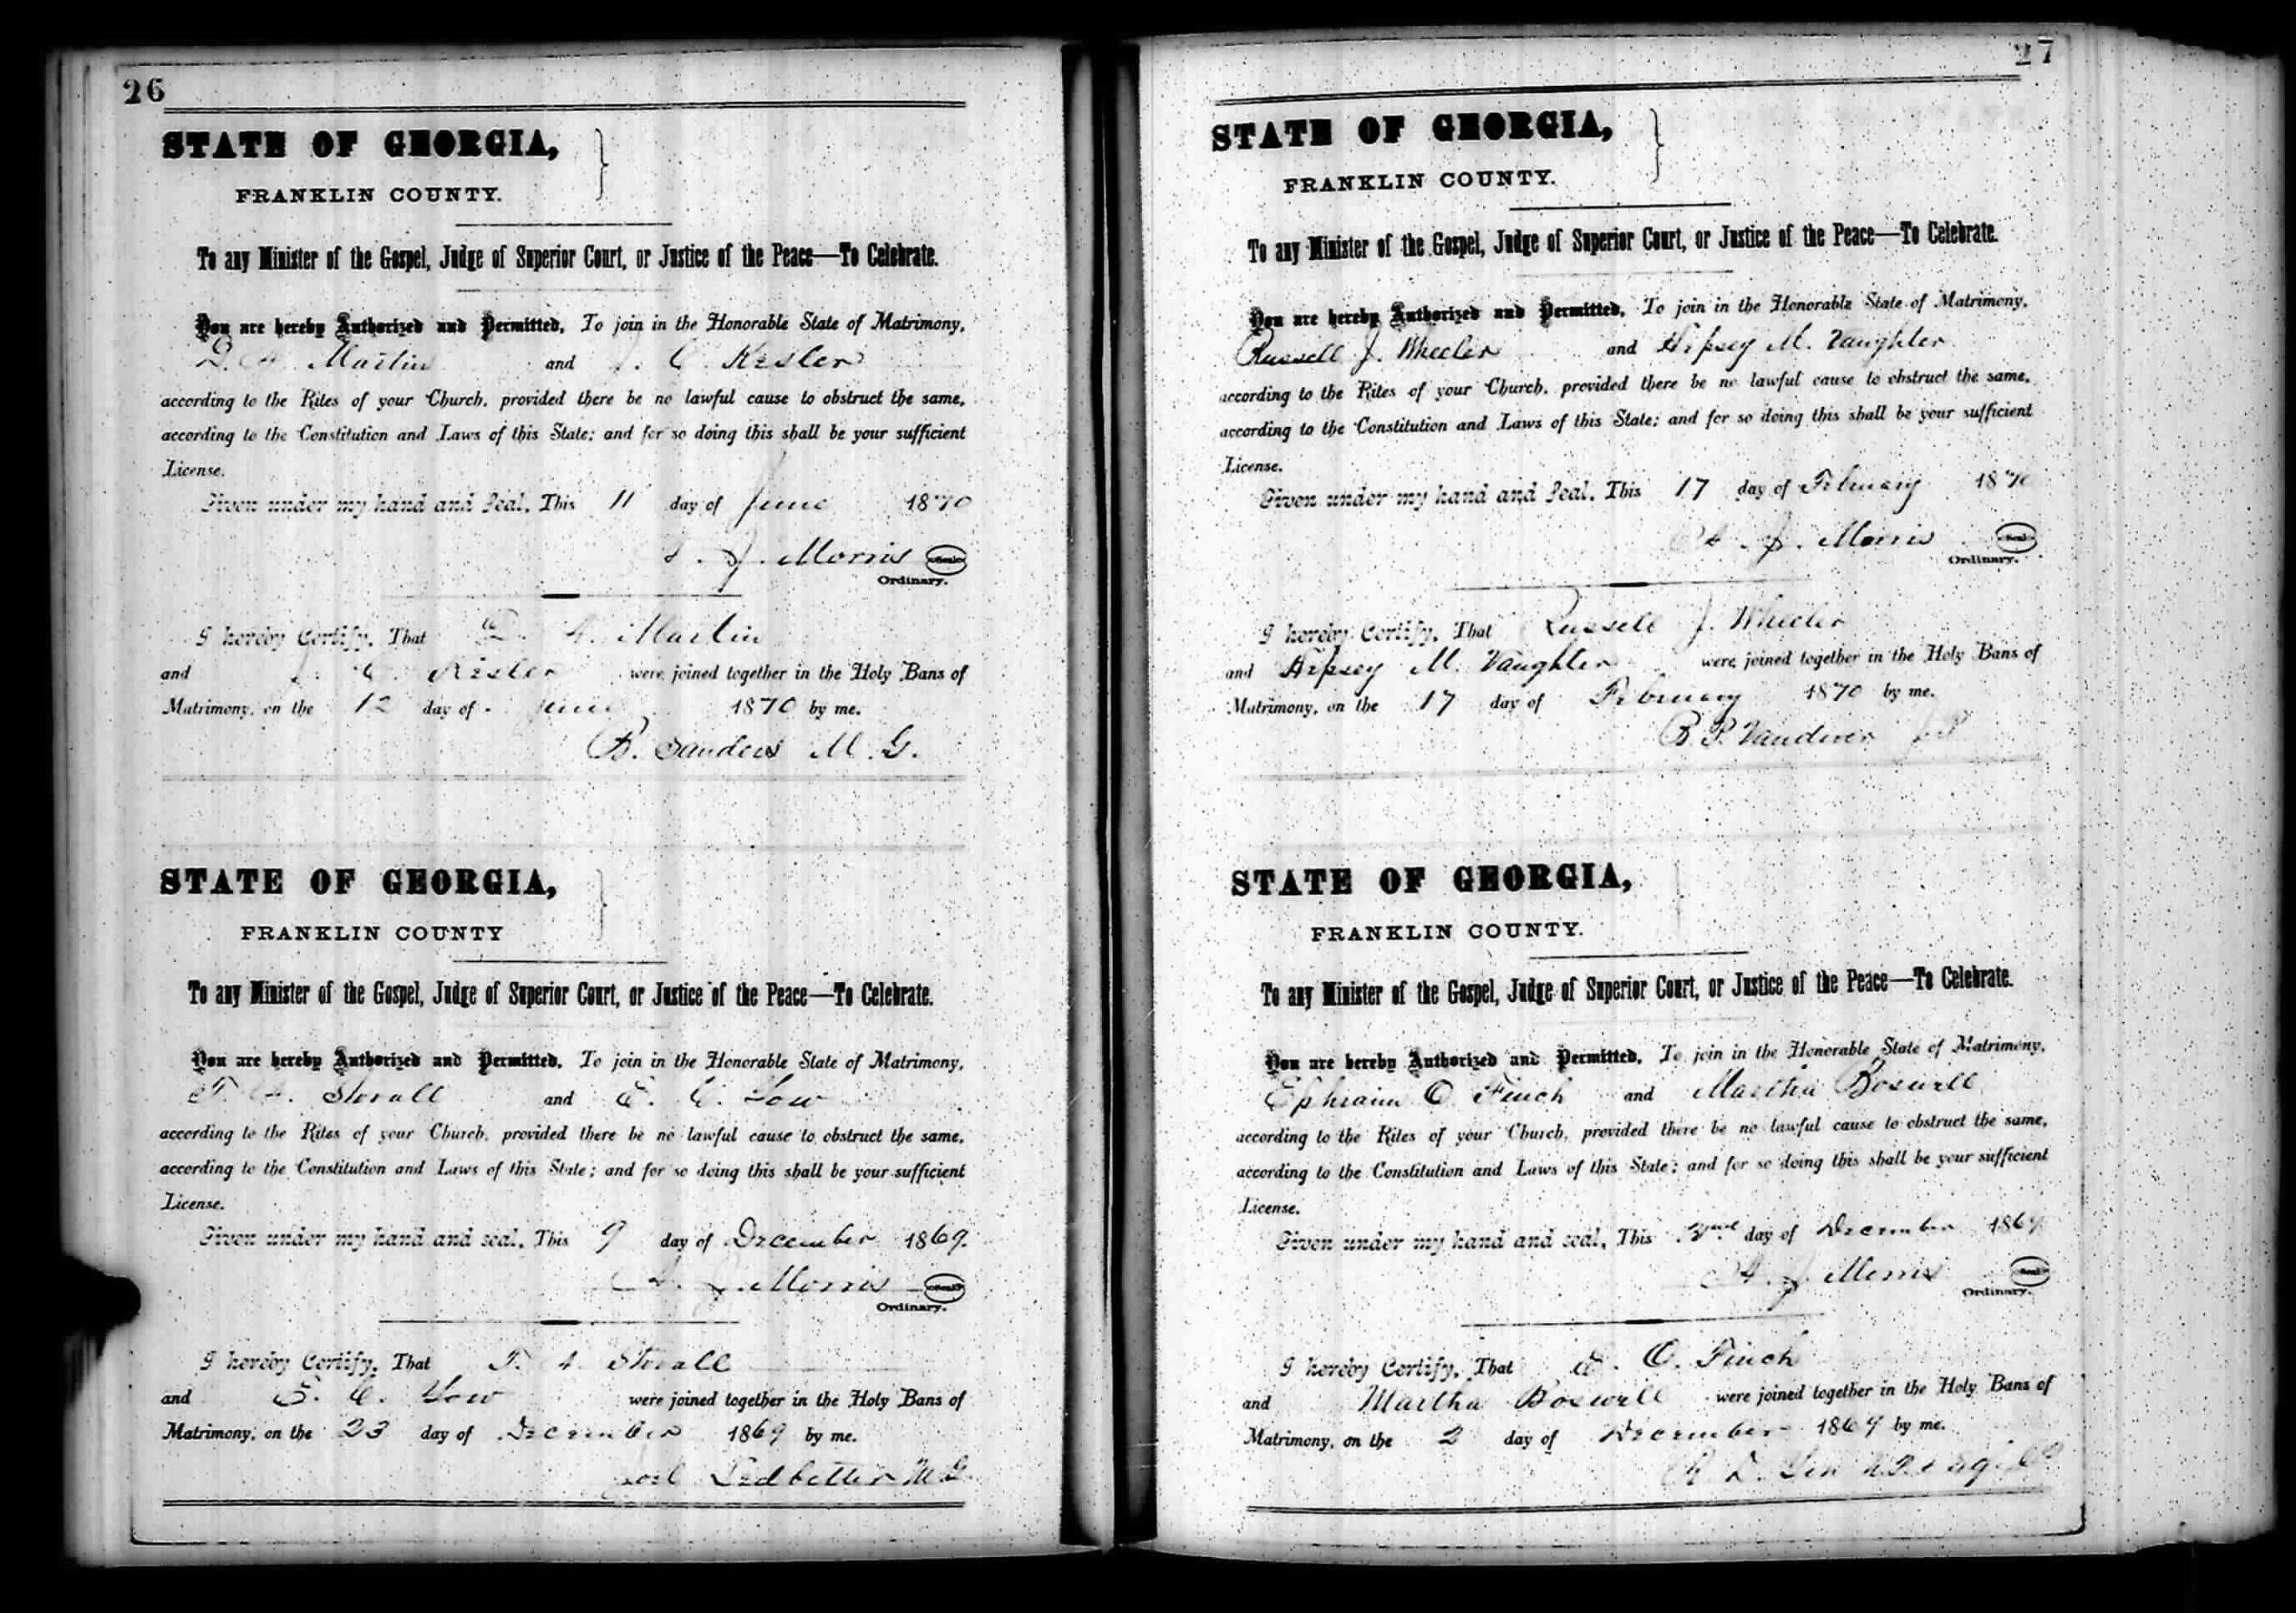 26
STATE OF GEORGIA,
FRANKLIN COUNTY.
To any Minister of the Gospel, Judge of Superior Court, or Justice of the Peace—To Celebrate.
You are hereby Authorized and Permitted, To join in the Honorable State of Matrimony,
Martin and C. Kesler
according to the Rites of your Church, provided there be no lawful cause to obstruct the same,
according to the Constitution and Laws of this State; and for so doing this shall be your sufficient
License.
Given under my hand and Seal, This 11 day of June 1870
J. Morris Seal
Ordinary.
I hereby Certify, That Martin
and C. Kesler were joined together in the Holy Bans of
Matrimony, on the 12 day of June 1870 by me.
B. Sanders M. G.
STATE OF GEORGIA,
FRANKLIN COUNTY
To any Minister of the Gospel, Judge of Superior Court, or Justice of the Peace—To Celebrate.
You are hereby Authorized and Permitted, To join in the Honorable State of Matrimony,
Stovall and E. C. Yow
according to the Rites of your Church, provided there be no lawful cause to obstruct the same,
according to the Constitution and Laws of this State; and for so doing this shall be your sufficient
License.
Given under my hand and seal, This 9 day of December 1869.
A. J. Morris Seal
Ordinary.
I hereby Certify, That Stovall
and E. C. Yow were joined together in the Holy Bans of
Matrimony, on the 23 day of December 1869 by me.
Joel Ledbetter M G
27
STATE OF GEORGIA,
FRANKLIN COUNTY.
To any Minister of the Gospel, Judge of Superior Court, or Justice of the Peace—To Celebrate.
You are hereby Authorized and Permitted, To join in the Honorable State of Matrimony,
Russell J. Wheeler and Hepsey M. Vaughter
according to the Rites of your Church, provided there be no lawful cause to obstruct the same,
according to the Constitution and Laws of this State; and for so doing this shall be your sufficient
License.
Given under my hand and Seal, This 17 day of February 1870
A. J. Morris Seal
Ordinary.
I hereby Certify, That Russell J. Wheeler
and Hepsey M. Vaughter were joined together in the Holy Bans of
Matrimony, on the 17 day of February 1870 by me.
B. P. Vandiver
STATE OF GEORGIA,
FRANKLIN COUNTY.
To any Minister of the Gospel, Judge of Superior Court, or Justice of the Peace—To Celebrate.
You are hereby Authorized and Permitted, To join in the Honorable State of Matrimony,
Ephraim O. Finch and Martha Boswell
according to the Rites of your Church, provided there be no lawful cause to obstruct the same,
according to the Constitution and Laws of this State; and for so doing this shall be your sufficient
License.
Given under my hand and seal, This day of December 1869
A. J. Morris Seal
Ordinary.
I hereby Certify, That E. O. Finch
and Martha Boswell were joined together in the Holy Bans of
Matrimony, on the 2 day of December 1869 by me.